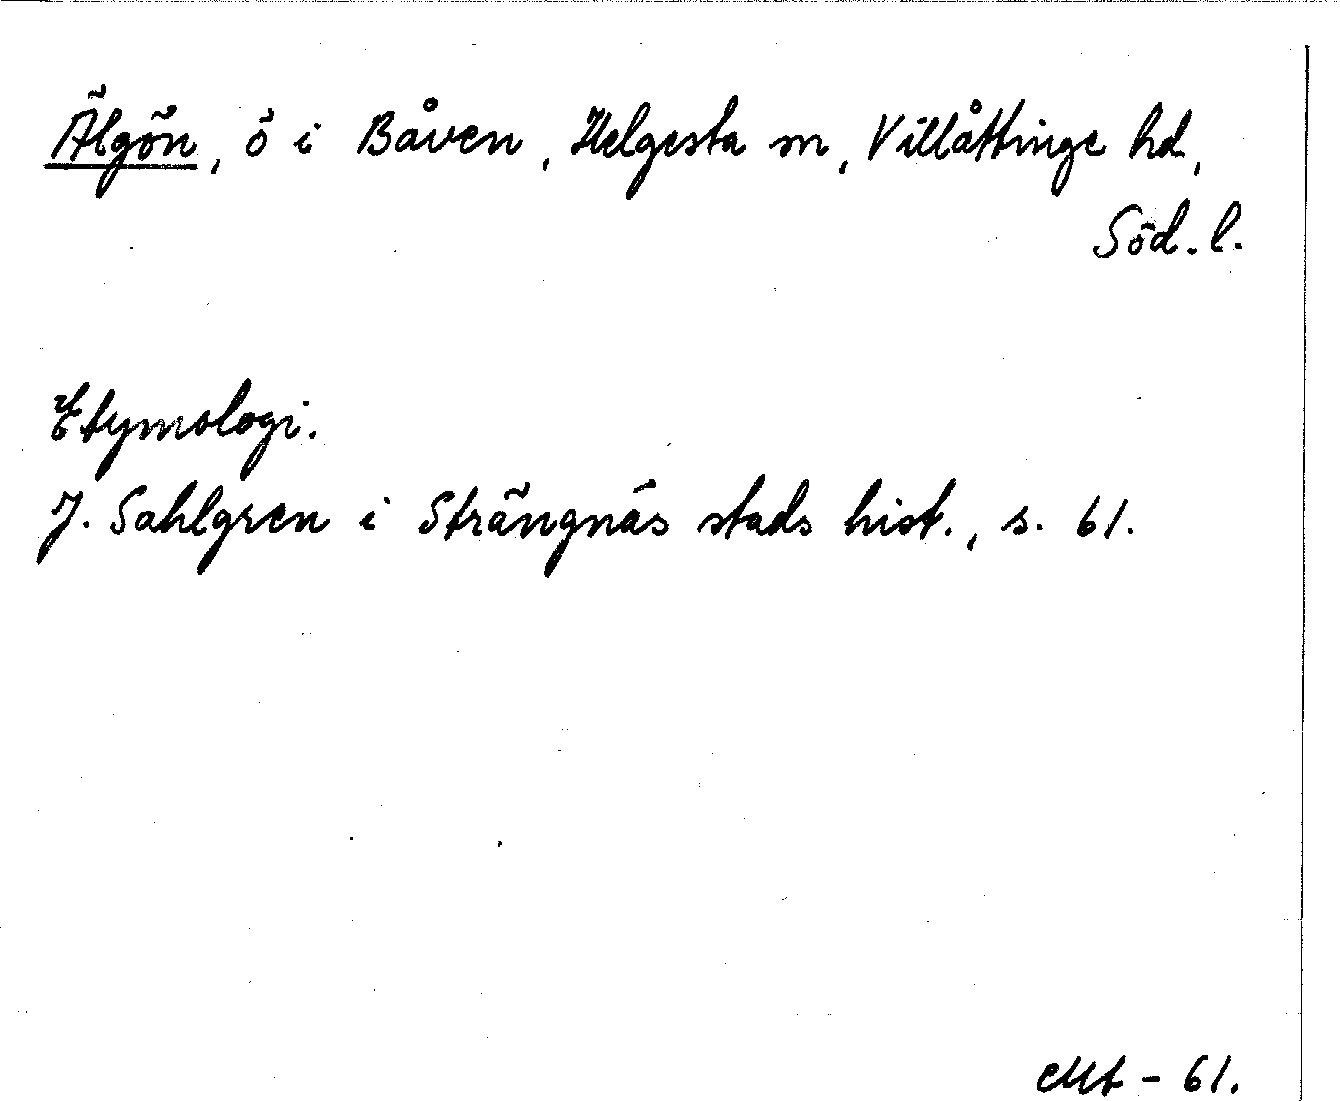 Älgön, ö i Båven, Helgesta sn, Villåttinge hd,
Söd. l.
Etymologi.
J. Sahlgren i Strängnäs stads hist., s. 61.
- 61.